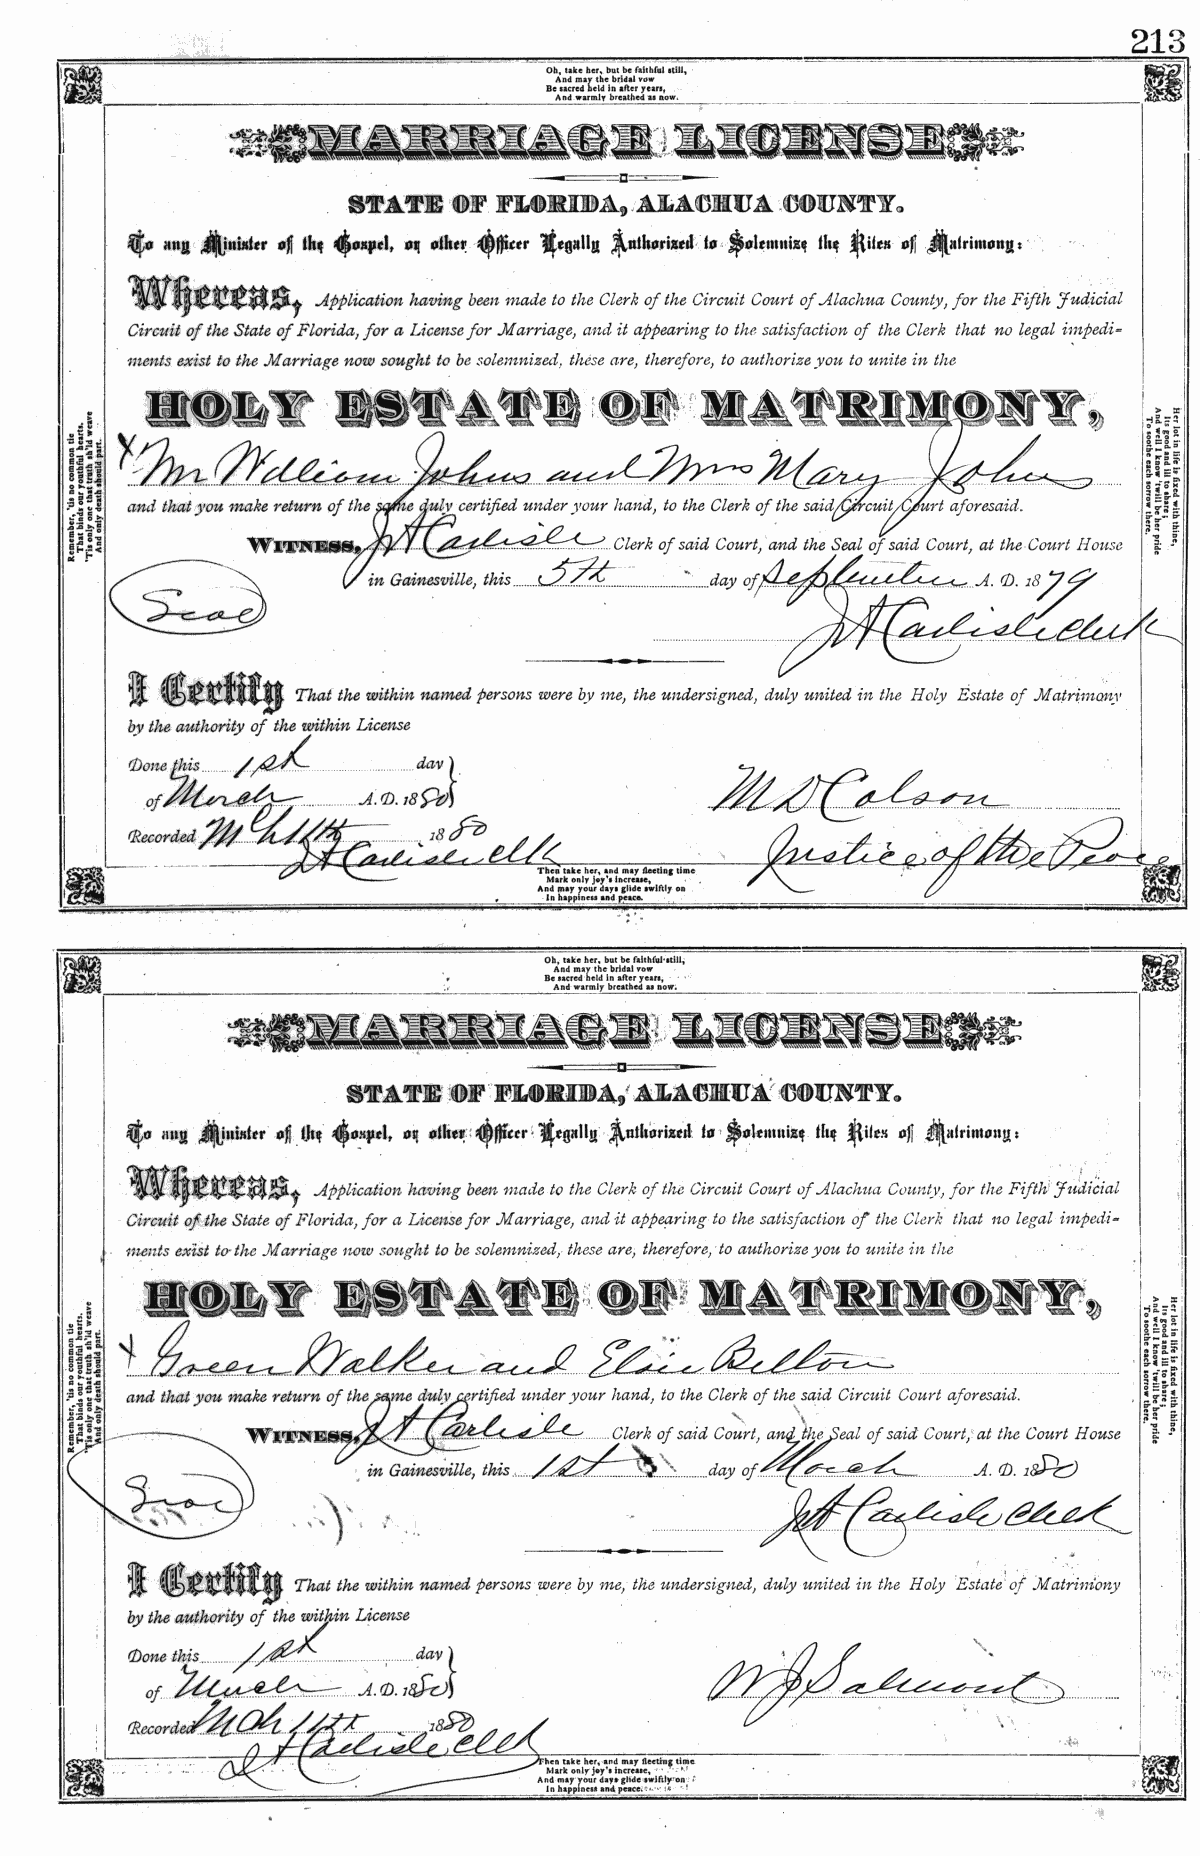 213
Oh, take her, but be faithful still,
And may the bridal vow
Be sacred held in after years,
And warmly breathed as now.
MARRIAGE LICENSE
STATE OF FLORIDA, ALACHUA COUNTY.
To any Minister of the Gospel, or other Officer Legally Authorized to Solemnize the Rites of Matrimony:
Whereas, Application having been made to the Clerk of the Circuit Court of Alachua County, for the Fifth Judicial
Circuit of the State of Florida, for a License for Marriage, and it appearing to the satisfaction of the Clerk that no legal impedi=
ments exist to the Marriage now sought to be solemnized, these are, therefore, to authorize you to unite in the
HOLY ESTATE OF MATRIMONY,
X Mr William Johns and Mrs Mary Johns
and that you make return of the same duly certified under your hand, to the Clerk of the said Circuit Court aforesaid.
WITNESS, J A Carlisle Clerk of said Court, and the Seal of said Court, at the Court House
in Gainesville, this 5th day of September A. D. 1879
Seal
J A Carlisle Clerk
I Certify That the within named persons were by me, the undersigned, duly united in the Holy Estate of Matrimony
by the authority of the within License
Done this 1st day
of March A. D. 1880
M D Colson
Recorded Mch 11th 1880
J A Carlisle Clk
Justice of the Peace
Then take her, and may fleeting time
Mark only joy's increase,
And may your days glide swiftly on
In happiness and peace.
Remember, 'tis no common tie
That binds our youthful hearts,
'Tis only one that truth sh'ld weave
And only death should part.
Her lot in life is fixed with thine,
Its good and ill to share;
And well I know 'twill be her pride
To soothe each sorrow there.
Oh, take her, but be faithful still,
And may the bridal vow
Be sacred held in after years,
And warmly breathed as now.
MARRIAGE LICENSE
STATE OF FLORIDA, ALACHUA COUNTY.
To any Minister of the Gospel, or other Officer Legally Authorized to Solemnize the Rites of Matrimony:
Whereas, Application having been made to the Clerk of the Circuit Court of Alachua County, for the Fifth Judicial
Circuit of the State of Florida, for a License for Marriage, and it appearing to the satisfaction of the Clerk that no legal impedi=
ments exist to the Marriage now sought to be solemnized, these are, therefore, to authorize you to unite in the
HOLY ESTATE OF MATRIMONY,
X Green Walker and Elsie Belton
and that you make return of the same duly certified under your hand, to the Clerk of the said Circuit Court aforesaid.
WITNESS, J A Carlisle Clerk of said Court, and the Seal of said Court, at the Court House
in Gainesville, this 1st day of March A. D. 1880
Seal
J A Carlisle Clerk
I Certify That the within named persons were by me, the undersigned, duly united in the Holy Estate of Matrimony
by the authority of the within License
Done this 1st day
of March A. D. 1880
W J
Recorded Mch 11th 1880
J A Carlisle Clk
Then take her, and may fleeting time
Mark only joy's increase,
And may your days glide swiftly on
In happiness and peace.
Remember, 'tis no common tie
That binds our youthful hearts,
'Tis only one that truth sh'ld weave
And only death should part.
Her lot in life is fixed with thine,
Its good and ill to share;
And well I know 'twill be her pride
To soothe each sorrow there.